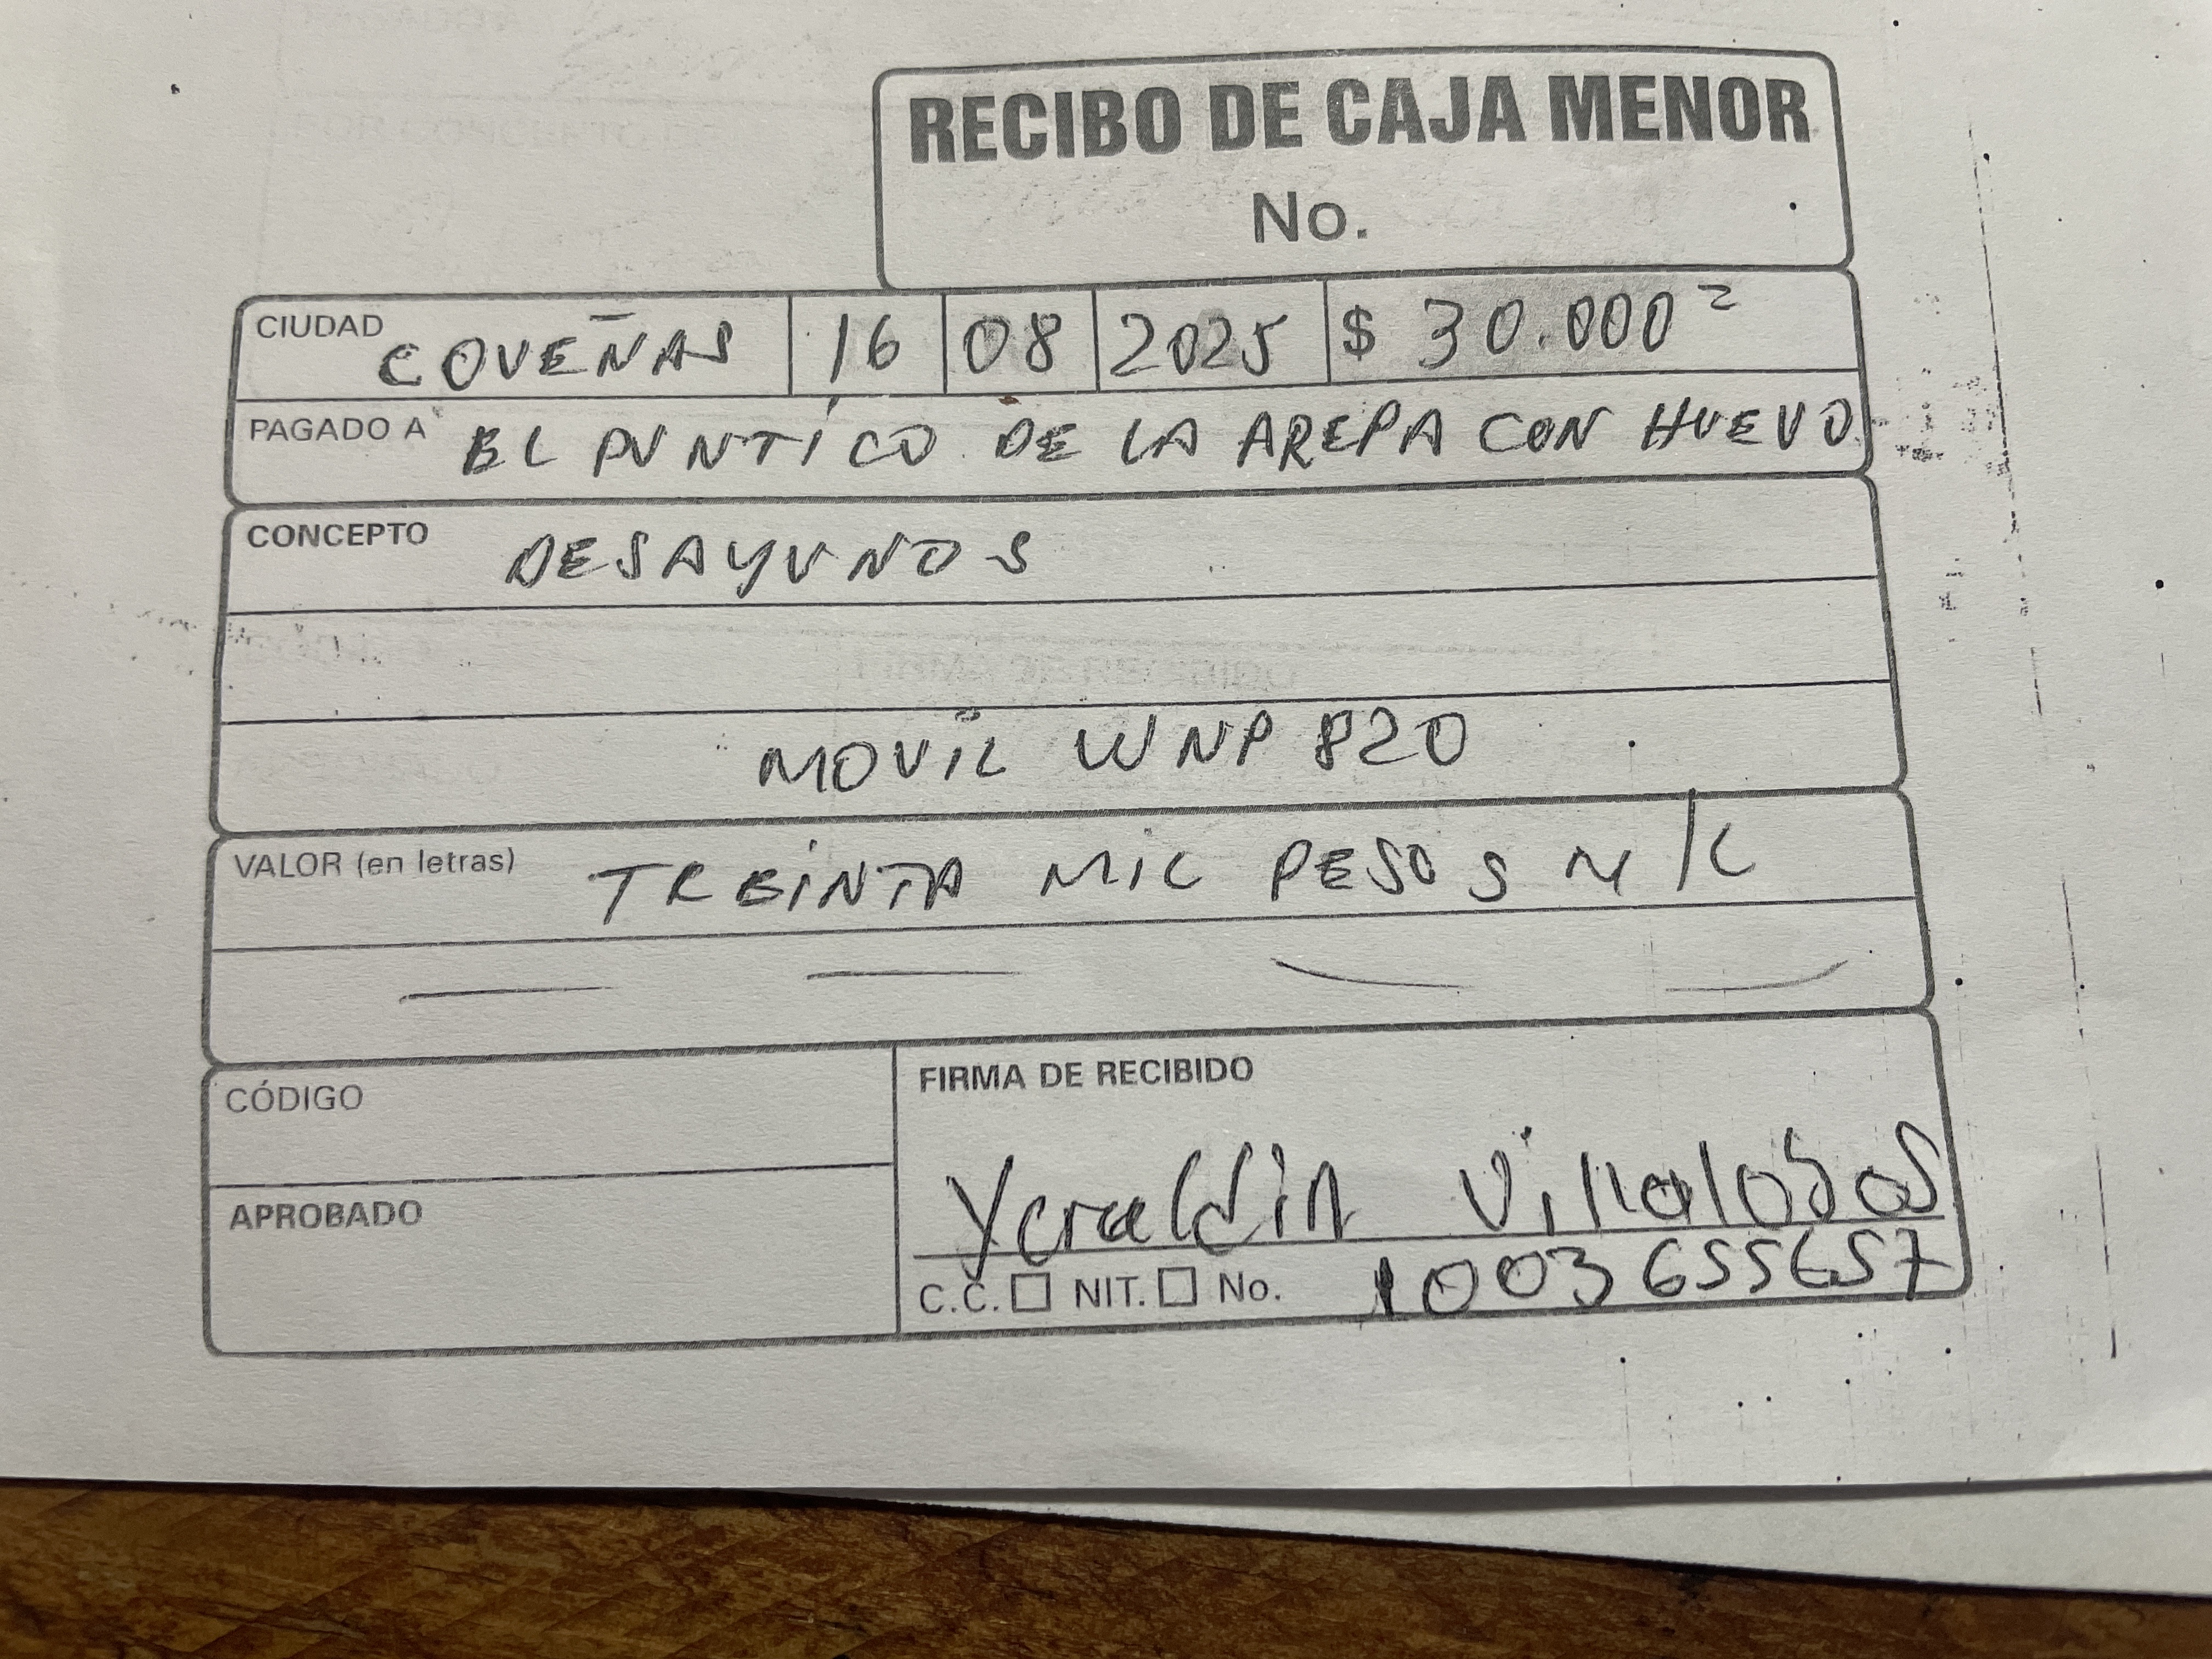 RECIBO DE CAJA MENOR
No.
CIUDAD COVEÑAS 16 08 2025 $ 30.000 =
PAGADO A EL PUNTICO DE LA AREPA CON HUEVO
CONCEPTO DESAYUNOS
MOVIL WNP 820
VALOR (en letras) TREINTA MIL PESOS M/C
CÓDIGO
FIRMA DE RECIBIDO
APROBADO
Yeraldin Villalobos
C.C. NIT. No. 1003655657